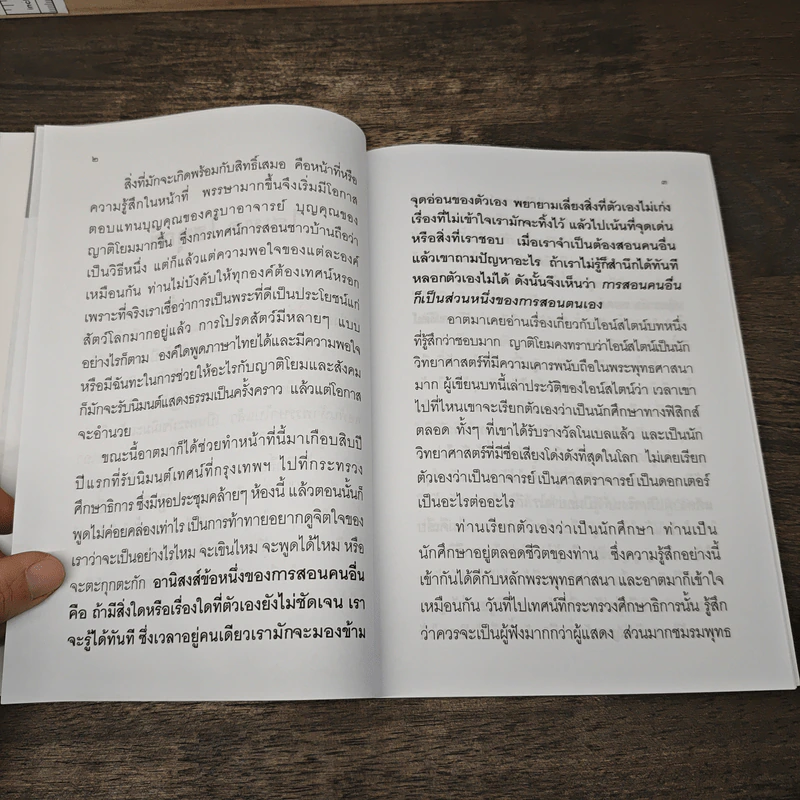 ๒
สิ่งที่มักจะเกิดพร้อมกับสิทธิ์เสมอ คือหน้าที่หรือ
ความรู้สึกในหน้าที่ พรรษามากขึ้นจึงเริ่มมีโอกาส
ตอบแทนบุญคุณของครูบาอาจารย์ บุญคุณของ
ญาติโยมมากขึ้น ซึ่งการเทศน์การสอนชาวบ้านถือว่า
เป็นวิธีหนึ่ง แต่ก็แล้วแต่ความพอใจของแต่ละองค์
เหมือนกัน ท่านไม่บังคับให้ทุกองค์ต้องเทศน์หรอก
เพราะที่จริงเราเชื่อว่าการเป็นพระที่ดีเป็นประโยชน์แก่
สัตว์โลกมากอยู่แล้ว การโปรดสัตว์มีหลายๆ แบบ
อย่างไรก็ตาม องค์ใดพูดภาษาไทยได้และมีความพอใจ
หรือมีฉันทะในการช่วยให้อะไรกับญาติโยมและสังคม
ก็มักจะรับนิมนต์แสดงธรรมเป็นครั้งคราว แล้วแต่โอกาส
จะอำนวย
ขณะนี้อาตมาก็ได้ช่วยทำหน้าที่นี้มาเกือบสิบปี
ปีแรกที่รับนิมนต์เทศน์ที่กรุงเทพฯ ไปที่กระทรวง
ศึกษาธิการ ซึ่งมีหอประชุมคล้ายๆ ห้องนี้ แล้วตอนนั้นก็
พูดไม่ค่อยคล่องเท่าไร เป็นการท้าทายอยากดูจิตใจของ
เราว่าจะเป็นอย่างไรไหม จะเขินไหม จะพูดได้ไหม หรือ
จะตะกุกตะกัก อานิสงส์ข้อหนึ่งของการสอนคนอื่น
คือ ถ้ามีสิ่งใดหรือเรื่องใดที่ตัวเองยังไม่ชัดเจน เรา
จะรู้ได้ทันที ซึ่งเวลาอยู่คนเดียวเรามักจะมองข้าม
๓
จุดอ่อนของตัวเอง พยายามเลี่ยงสิ่งที่ตัวเองไม่เก่ง
เรื่องที่ไม่เข้าใจเรามักจะทิ้งไว้ แล้วไปเน้นที่จุดเด่น
หรือสิ่งที่เราชอบ เมื่อเราจำเป็นต้องสอนคนอื่น
แล้วเขาถามปัญหาอะไร ถ้าเราไม่รู้ก็สำนึกได้ทันที
หลอกตัวเองไม่ได้ ดังนั้นจึงเห็นว่า การสอนคนอื่น
ก็เป็นส่วนหนึ่งของการสอนตนเอง
อาตมาเคยอ่านเรื่องเกี่ยวกับไอน์สไตน์บทหนึ่ง
ที่รู้สึกว่าชอบมาก ญาติโยมคงทราบว่าไอน์สไตน์เป็นนัก
วิทยาศาสตร์ที่มีความเคารพนับถือในพระพุทธศาสนา
มาก ผู้เขียนบทนี้เล่าประวัติของไอน์สไตน์ว่า เวลาเขา
ไปที่ไหนเขาจะเรียกตัวเองว่าเป็นนักศึกษาทางฟิสิกส์
ตลอด ทั้งๆ ที่เขาได้รับรางวัลโนเบลแล้ว และเป็นนัก
วิทยาศาสตร์ที่มีชื่อเสียงโด่งดังที่สุดในโลก ไม่เคยเรียก
ตัวเองว่าเป็นอาจารย์ เป็นศาสตราจารย์ เป็นดอกเตอร์
เป็นอะไรต่ออะไร
ท่านเรียกตัวเองว่าเป็นนักศึกษา ท่านเป็น
นักศึกษาอยู่ตลอดชีวิตของท่าน ซึ่งความรู้สึกอย่างนี้
เข้ากันได้ดีกับหลักพระพุทธศาสนา และอาตมาก็เข้าใจ
เหมือนกัน วันที่ไปเทศน์ที่กระทรวงศึกษาธิการนั้น รู้สึก
ว่าควรจะเป็นผู้ฟังมากกว่าผู้แสดง ส่วนมากชมรมพุทธ